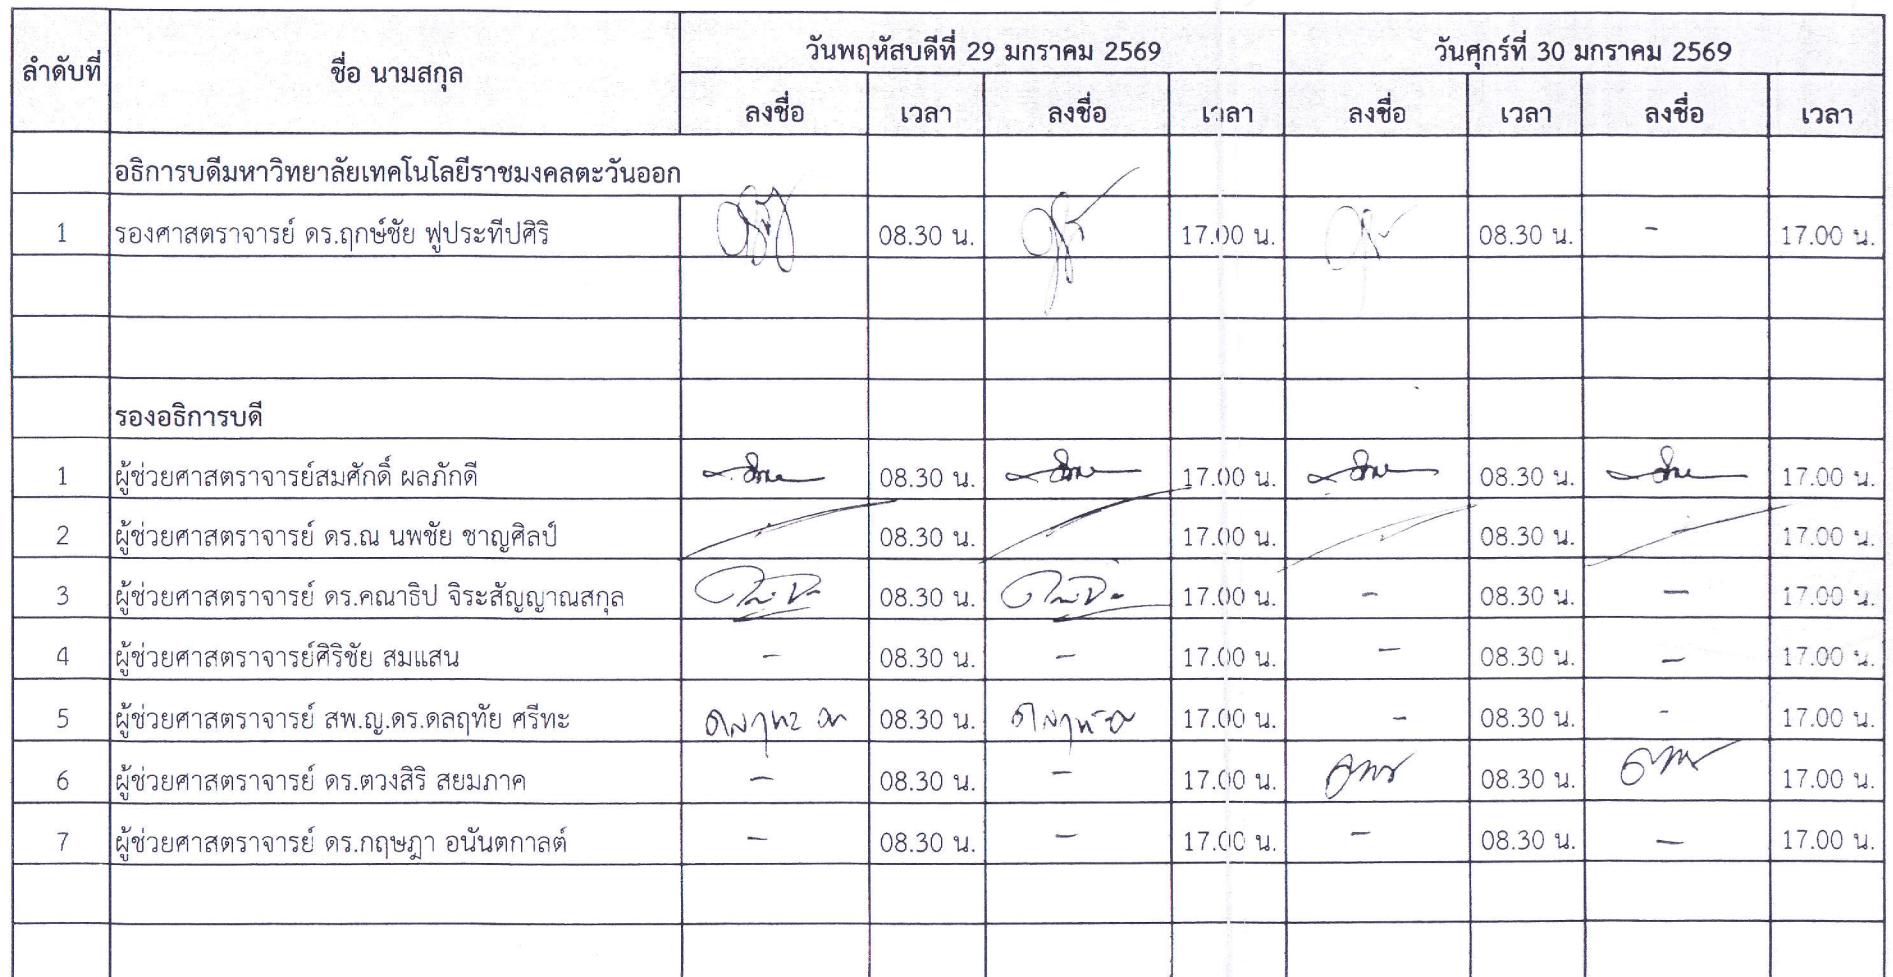 ลำดับที่ ชื่อ นามสกุล วันพฤหัสบดีที่ 29 มกราคม 2569 วันศุกร์ที่ 30 มกราคม 2569
ลงชื่อ เวลา ลงชื่อ เวลา ลงชื่อ เวลา ลงชื่อ เวลา
อธิการบดีมหาวิทยาลัยเทคโนโลยีราชมงคลตะวันออก
1 รองศาสตราจารย์ ดร.ฤกษ์ชัย ฟูประทีปศิริ 08.30 น. 17.00 น. 08.30 น. - 17.00 น.
รองอธิการบดี
1 ผู้ช่วยศาสตราจารย์สมศักดิ์ ผลภักดี 08.30 น. 17.00 น. 08.30 น. 17.00 น.
2 ผู้ช่วยศาสตราจารย์ ดร.ณ นพชัย ชาญศิลป์ 08.30 น. 17.00 น. 08.30 น. 17.00 น.
3 ผู้ช่วยศาสตราจารย์ ดร.คณาธิป จิระสัญญาณสกุล 08.30 น. 17.00 น. - 08.30 น. - 17.00 น.
4 ผู้ช่วยศาสตราจารย์ศิริชัย สมแสน - 08.30 น. - 17.00 น. - 08.30 น. - 17.00 น.
5 ผู้ช่วยศาสตราจารย์ สพ.ญ.ดร.ดลฤทัย ศรีทะ 08.30 น. 17.00 น. - 08.30 น. - 17.00 น.
6 ผู้ช่วยศาสตราจารย์ ดร.ตวงสิริ สยมภาค - 08.30 น. - 17.00 น. 08.30 น. 17.00 น.
7 ผู้ช่วยศาสตราจารย์ ดร.กฤษฎา อนันตกาลต์ - 08.30 น. - 17.00 น. - 08.30 น. - 17.00 น.